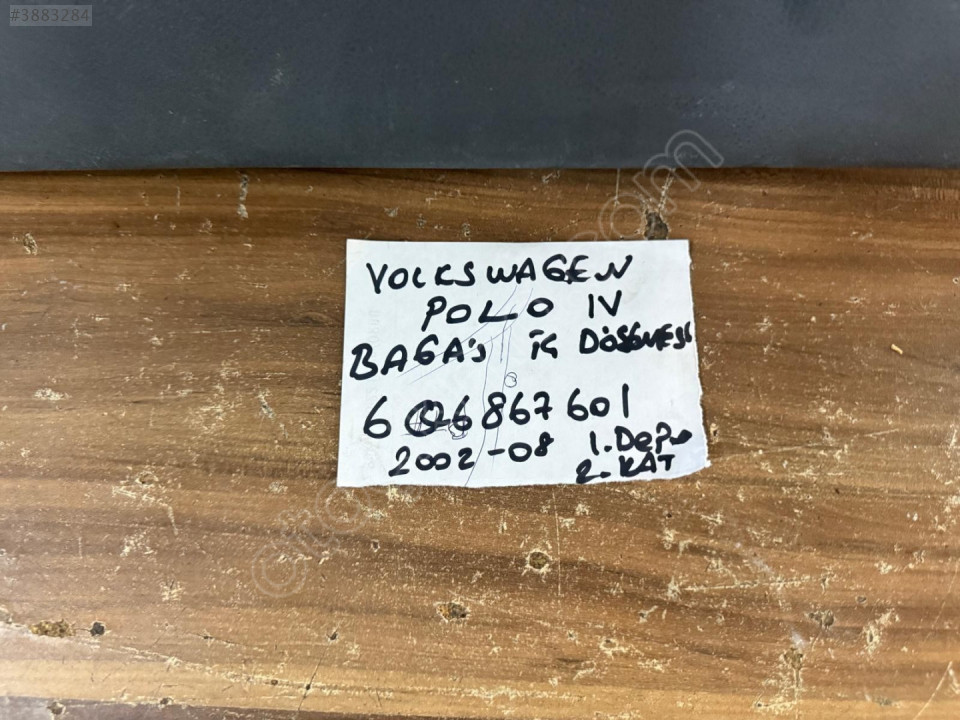 #3883284
VOLKSWAGEN
POLO IV
BAGAJ İÇ DÖŞEMESİ
6Q6867601
2002-08 1.Depo
2.KAT